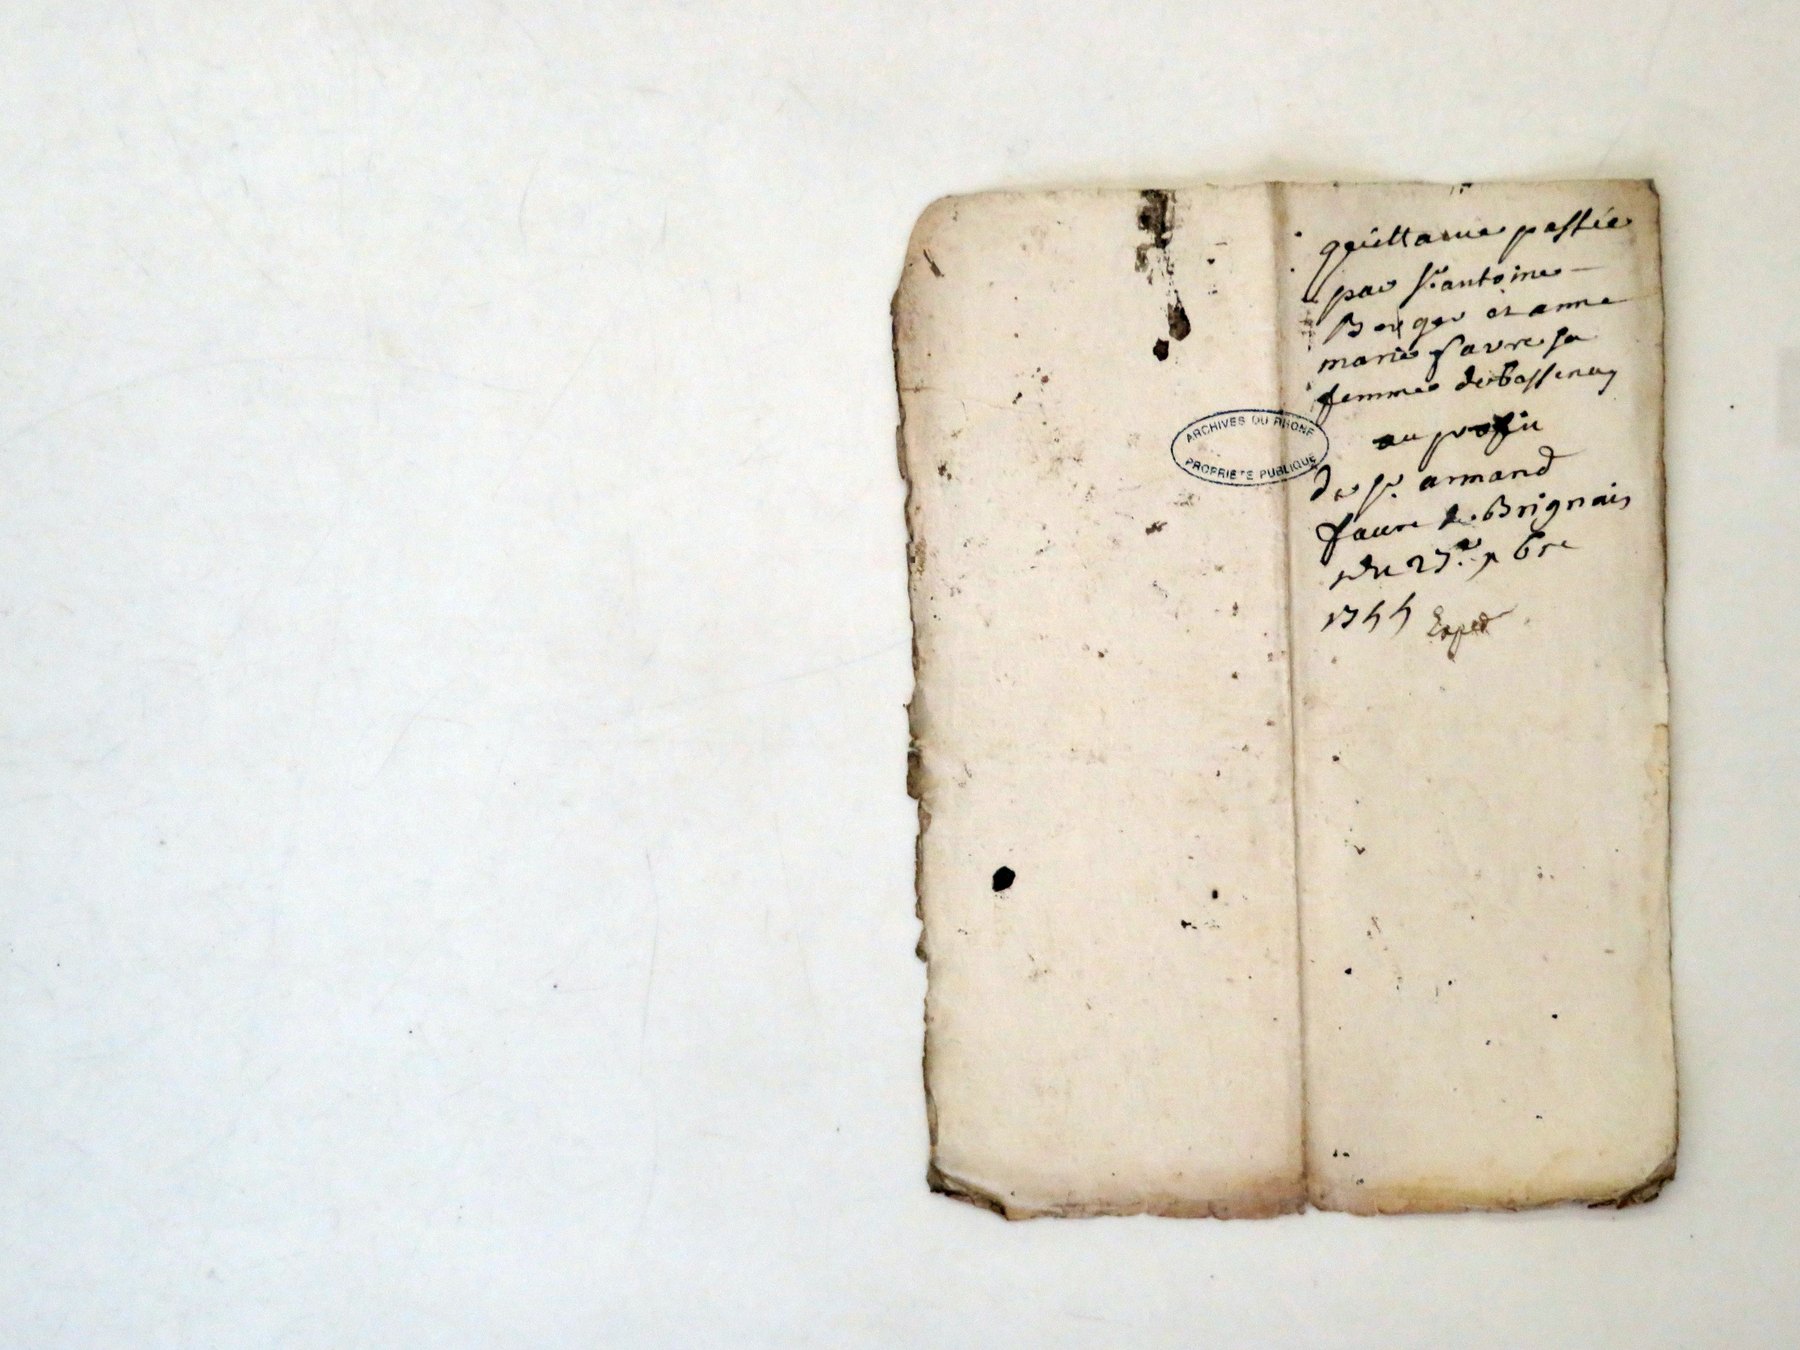 quittance passée
par Sr. antoine
Berger et anne
marie favre sa
femme de
au profit
de Sr. armand
faure de Brignais
du 23e. xbre
17
Exped
ARCHIVES DU RHONE
PROPRIETE PUBLIQUE